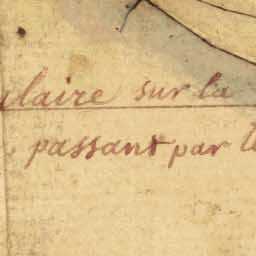 ulaire sur la
passant par